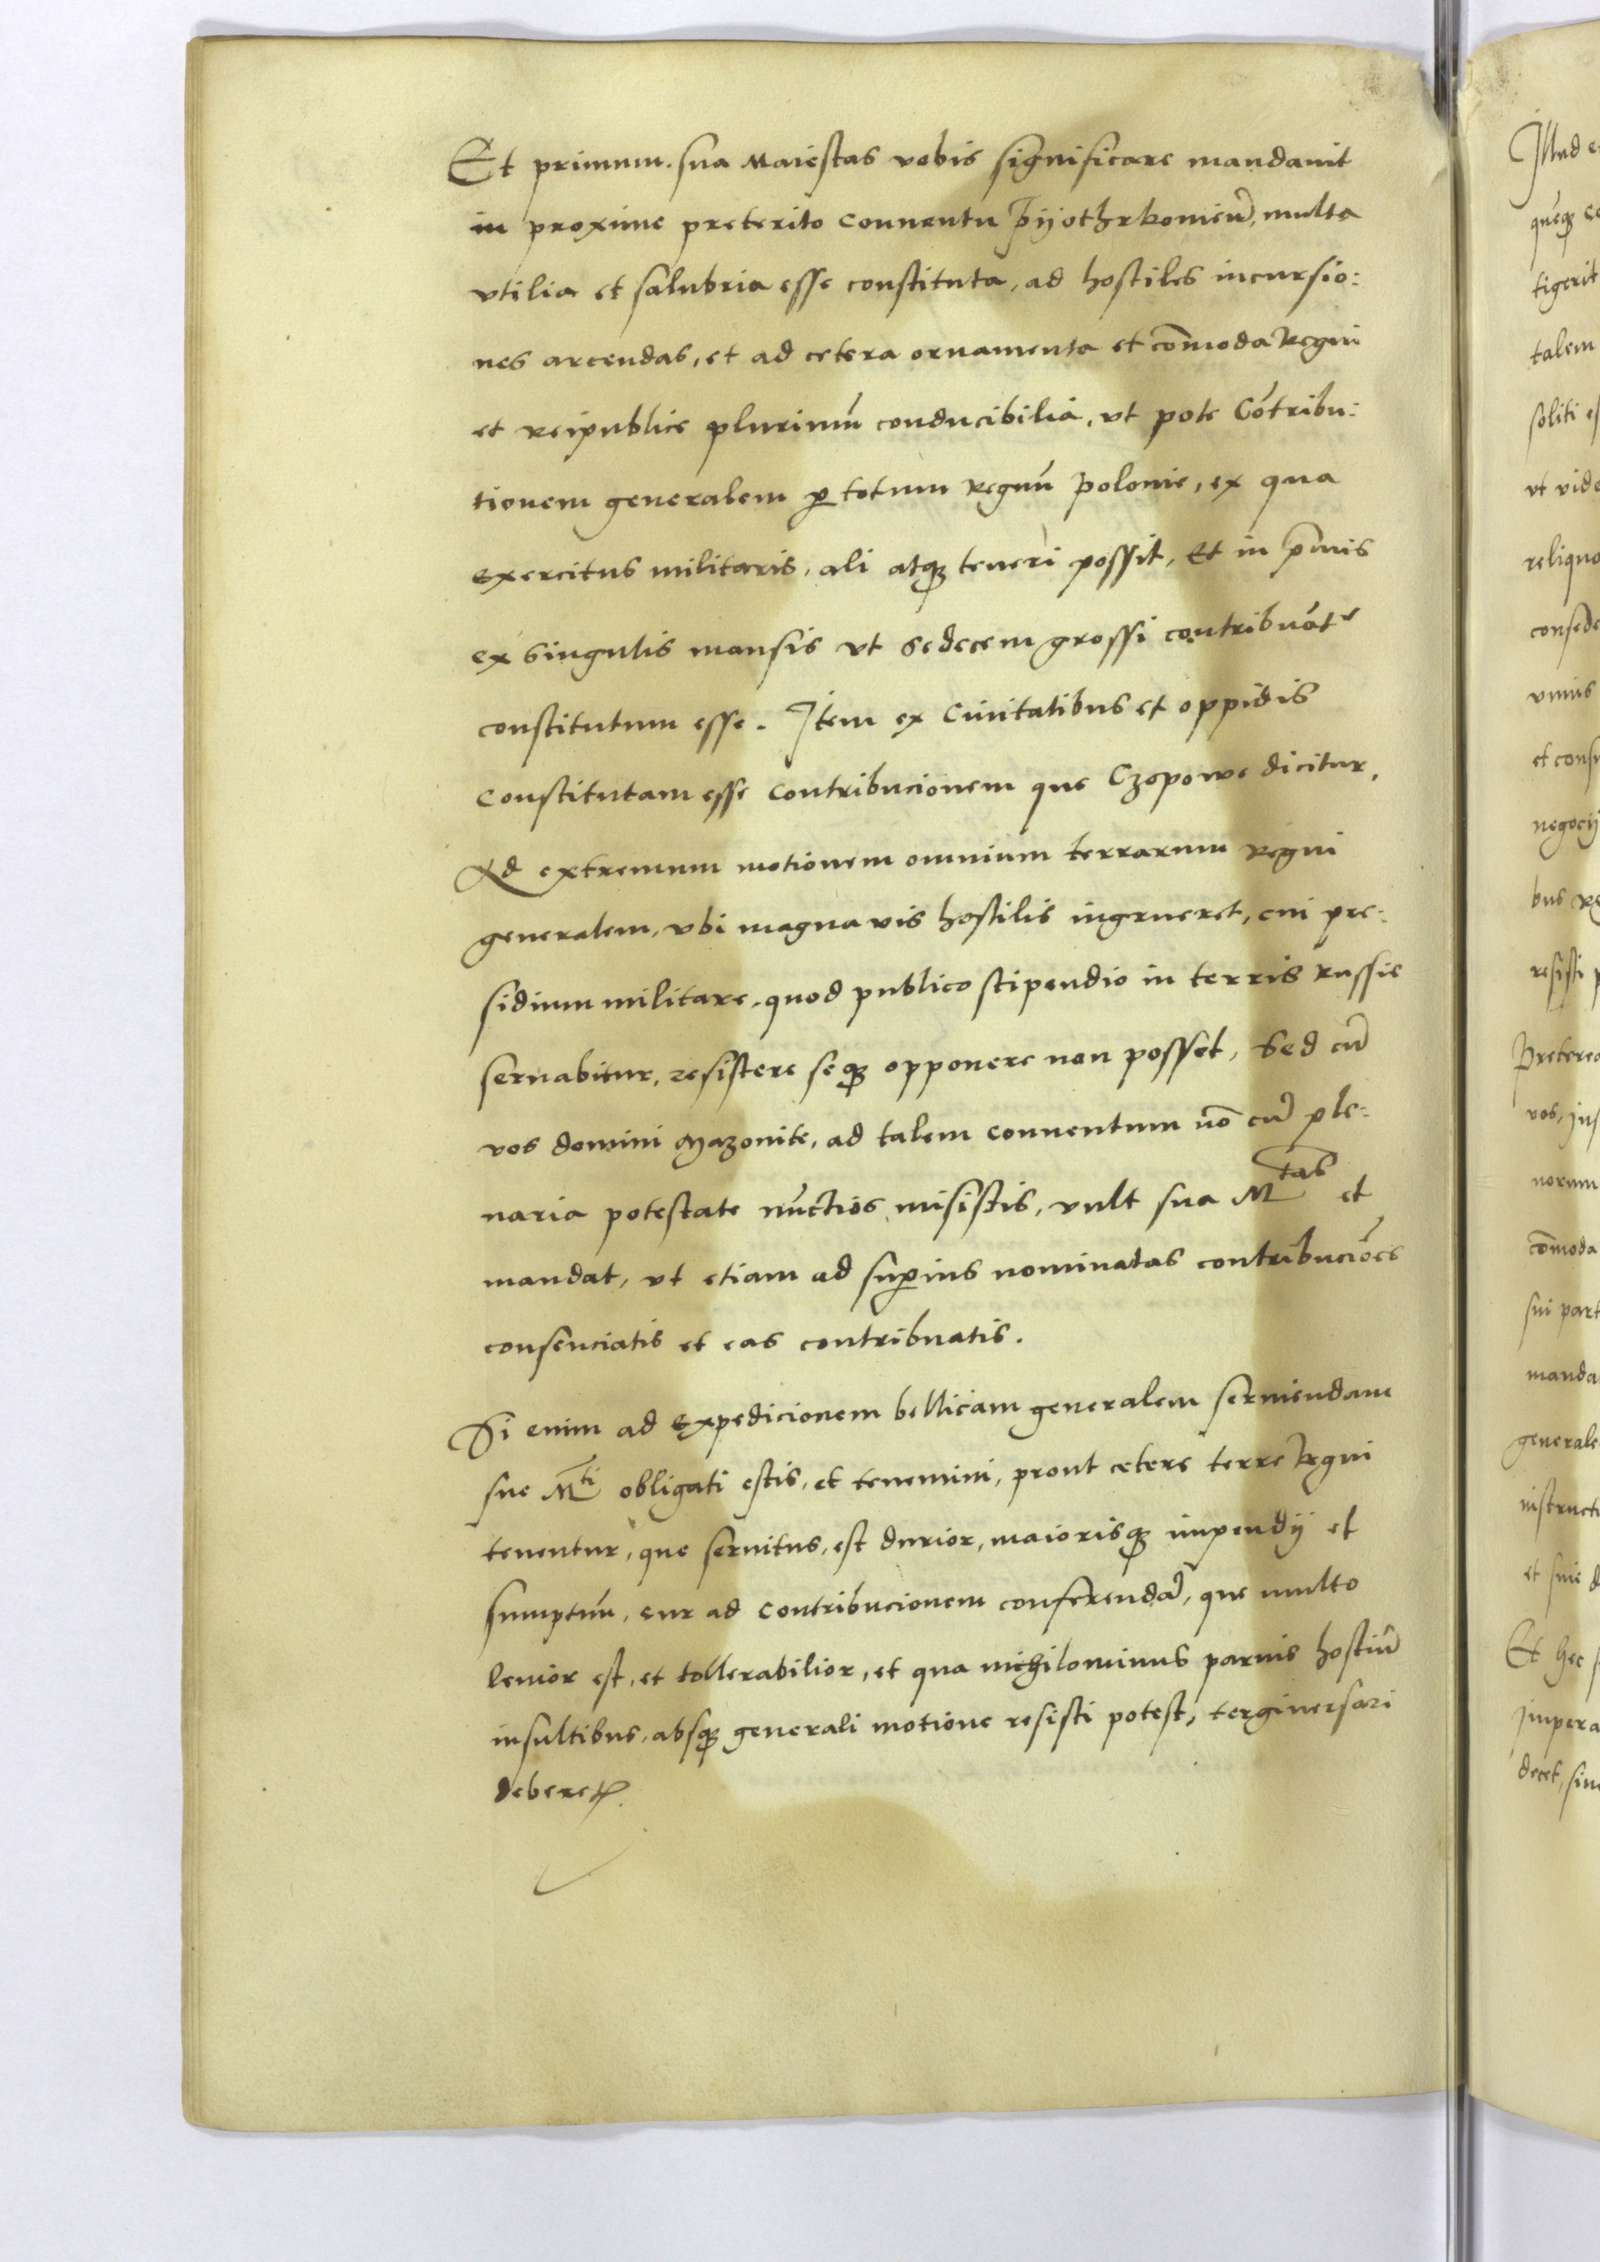 Et primum. sua Maiestas vobis significare mandauit
in proxime preterito Connentu Pijothrkouieñ, multa
vtilia et salubria esse constituta, ad hostiles incursio:
nes arcendas, et ad cetera ornamenta et com̄oda Regni
et Reipublice plurimū conducibilia, vt pote Cōtribu:
tionem generalem ꝑ totum Regnū Polonie, ex qua
exercitus militaris, ali atqꝫ teneri possit, Et in p̄mis
ex singulis mansis vt sedecem grossi contribuāt᷑
constitutum esse. Item ex Ciuitatibus et oppidis
Constitutam esse Contribucionem que Czopowe dicitur,
Ad extremum motionem omnium terrarum Regni
generalem, vbi magna vis hostilis ingrueret, cui pre:
sidium militare, quod publico stipendio in terris Russie
seruabitur, resistere seqꝫ opponere non posset, Sed cū
vos domini Mazouite, ad talem conuentum nō cū ple:
naria potestate nūctios misistis, vult sua M^tas et
mandat, vt etiam ad suꝑius nominatas contribuciōes
consenciatis et eas contribuatis.
Si enim ad Expedicionem bellicam generalem seruiendam
sue M^ti obligati estis, et tenemini, prout cetere terre Regni
tenentur, que seruitus, est durior, maiorisqꝫ impendij et
sumptuū, cur ad Contribucionem conferendā, que multo
leuior est, et tollerabilior, et qua nichilominus paruis hostiū
insultibus, absqꝫ generali motione resisti potest, terginersari
deberetꝭ.
Illud e
quēqꝫ co
tigerit
talem
soliti es
vt vide
reliquo
consede
vnius
et consu
negocij
bus Re
resisti p
Preterea
vos, ins
norum
com̄oda
sui part
manda
generale
instructi
et sine d
Et hec s
Impera
decet, sine